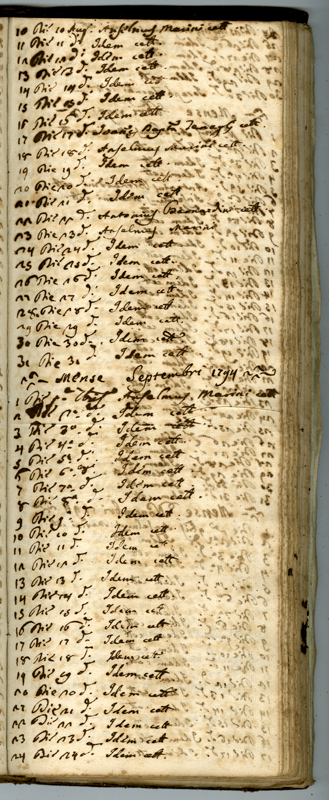 10 Die 10 Aug. Anselmus Marini cett
11 Die 11 d. Idem cett.
12 Die 12 d. Idem cett.
13 Die 13 d. Idem cett.
14 Die 14 d. Idem cett
15 Die 15 d. Idem cett
16 Die 16 d. Idem cett
17 Die 17 d. cett
18 Die 18 d. Anselmus Marini cett.
19 Die 19 d. Idem cett.
20 Die 20 d. Idem cett
21 Die 21 d. Idem cett
22 Die 22 d. Antonius cett
23 Die 23 d. Anselmus Marini
24 Die 24 d. Idem cett
25 Die 25 d. Idem cett.
26 Die 26 d. Idem cett
27 Die 27 d. Idem cett.
28 Die 28 d. Idem cett
29 Die 29 d. Idem cett.
30 Die 30 d. Idem cett
31 Die 31 Idem cett
Mense Septembri 1794
1 Anselmus Marini cett
2 Die 2 d. Idem cett
3 Die 3 d. Idem cett
4 Die 4 d. Idem cett
5 Die 5 d. Idem cett
6 Die 6 d. Idem cett
7 Die 7 d. Idem cett
8 Die 8 d. Idem cett.
9 Die 9 Idem cett
10 Die 10 d. Idem cett
11 Die 11 d. Idem cett
12 Die 12 d. Idem cett
13 Die 13 d. Idem cett
14 Die 14 d. Idem cett
15 Die 15 d. Idem cett
16 Die 16 d. Idem cett
17 Die 17 d. Idem cett
18 Die 18 d. Idem cett
19 Die 19 d. Idem cett
20 Die 20 d. Idem cett
21 Die 21 d. Idem cett
22 Die 22 d. Idem cett
23 Die 23 d. Idem cett
24 Die 24 d. Idem cett.